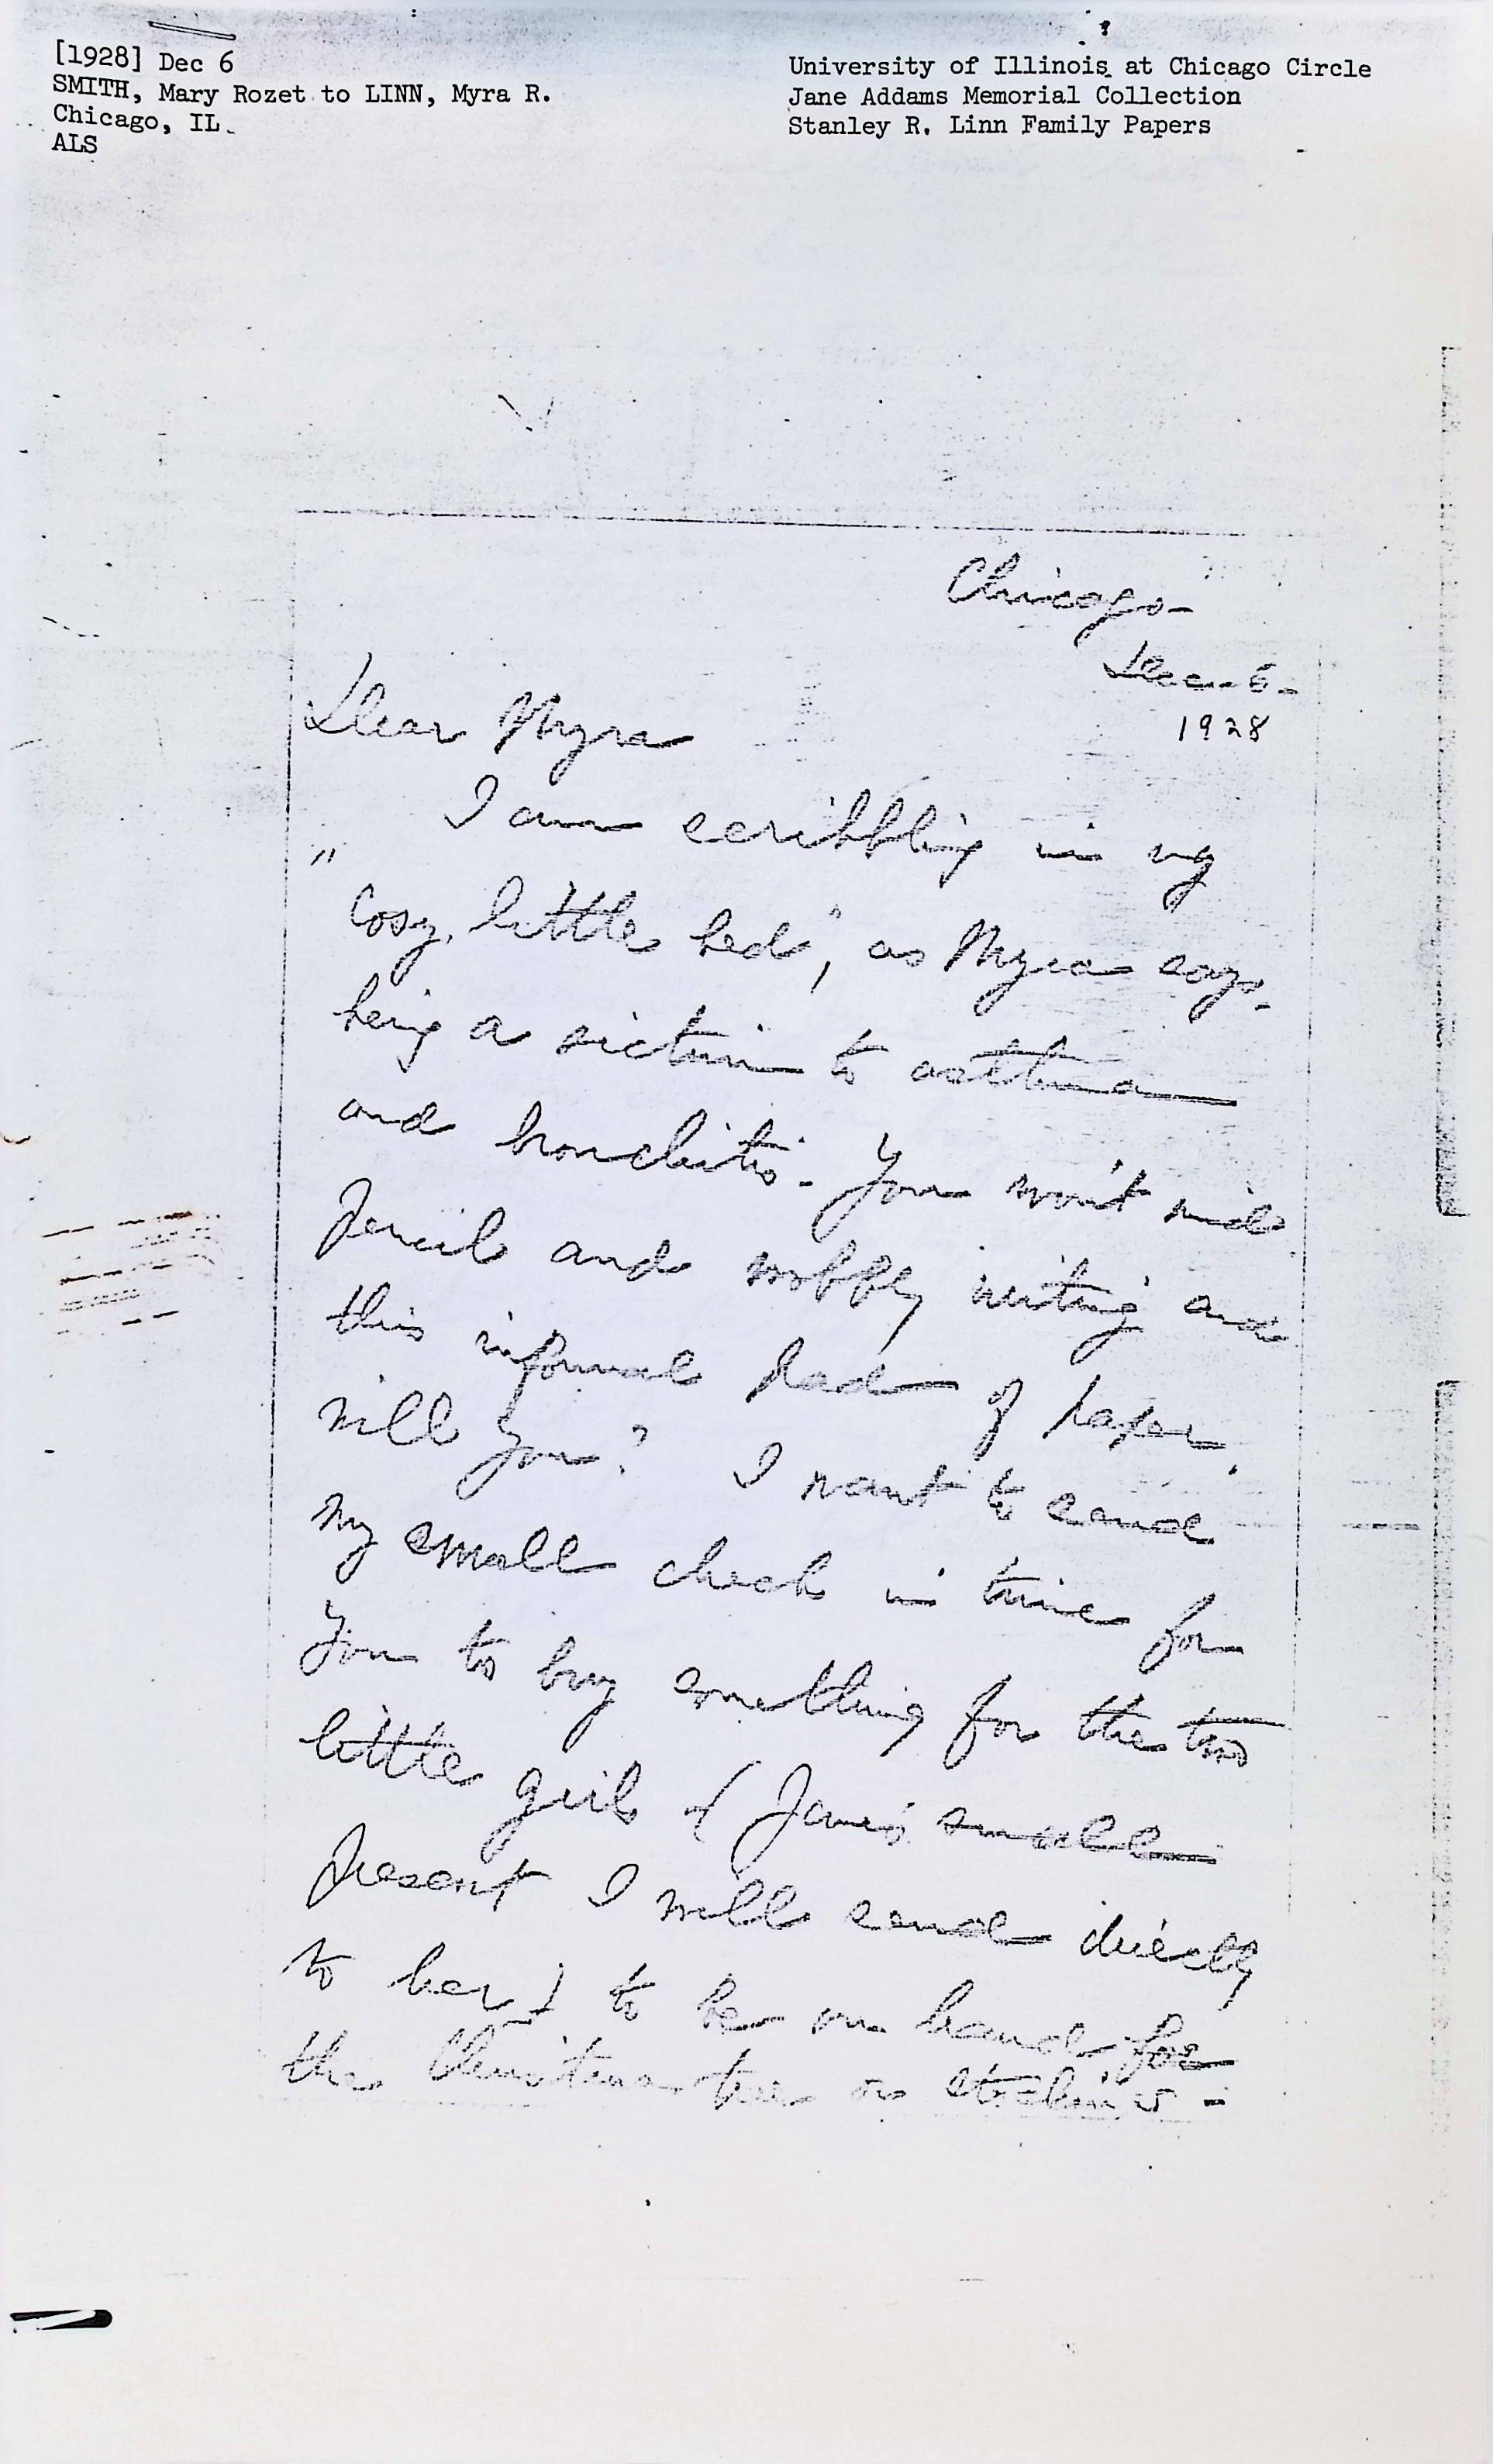 [1928] Dec 6
SMITH, Mary Rozet to LINN, Myra R.
Chicago, IL.
ALS
University of Illinois at Chicago Circle
Jane Addams Memorial Collection
Stanley R. Linn Family Papers
Chicago -
Dec - 6 -
1928
Dear Myra
I am scribbling in my
"cosy, little bed", as Myra says,
being a victim to asthma
and bronchitis - You won't mind
pencil and wobbly writing and
this informal pad of paper,
will you? I want to send
my small check in time for
you to buy something for the two
little girls (Jane's small
present I will send directly
to her) to be on hand for
the Christmas tree or stockings -